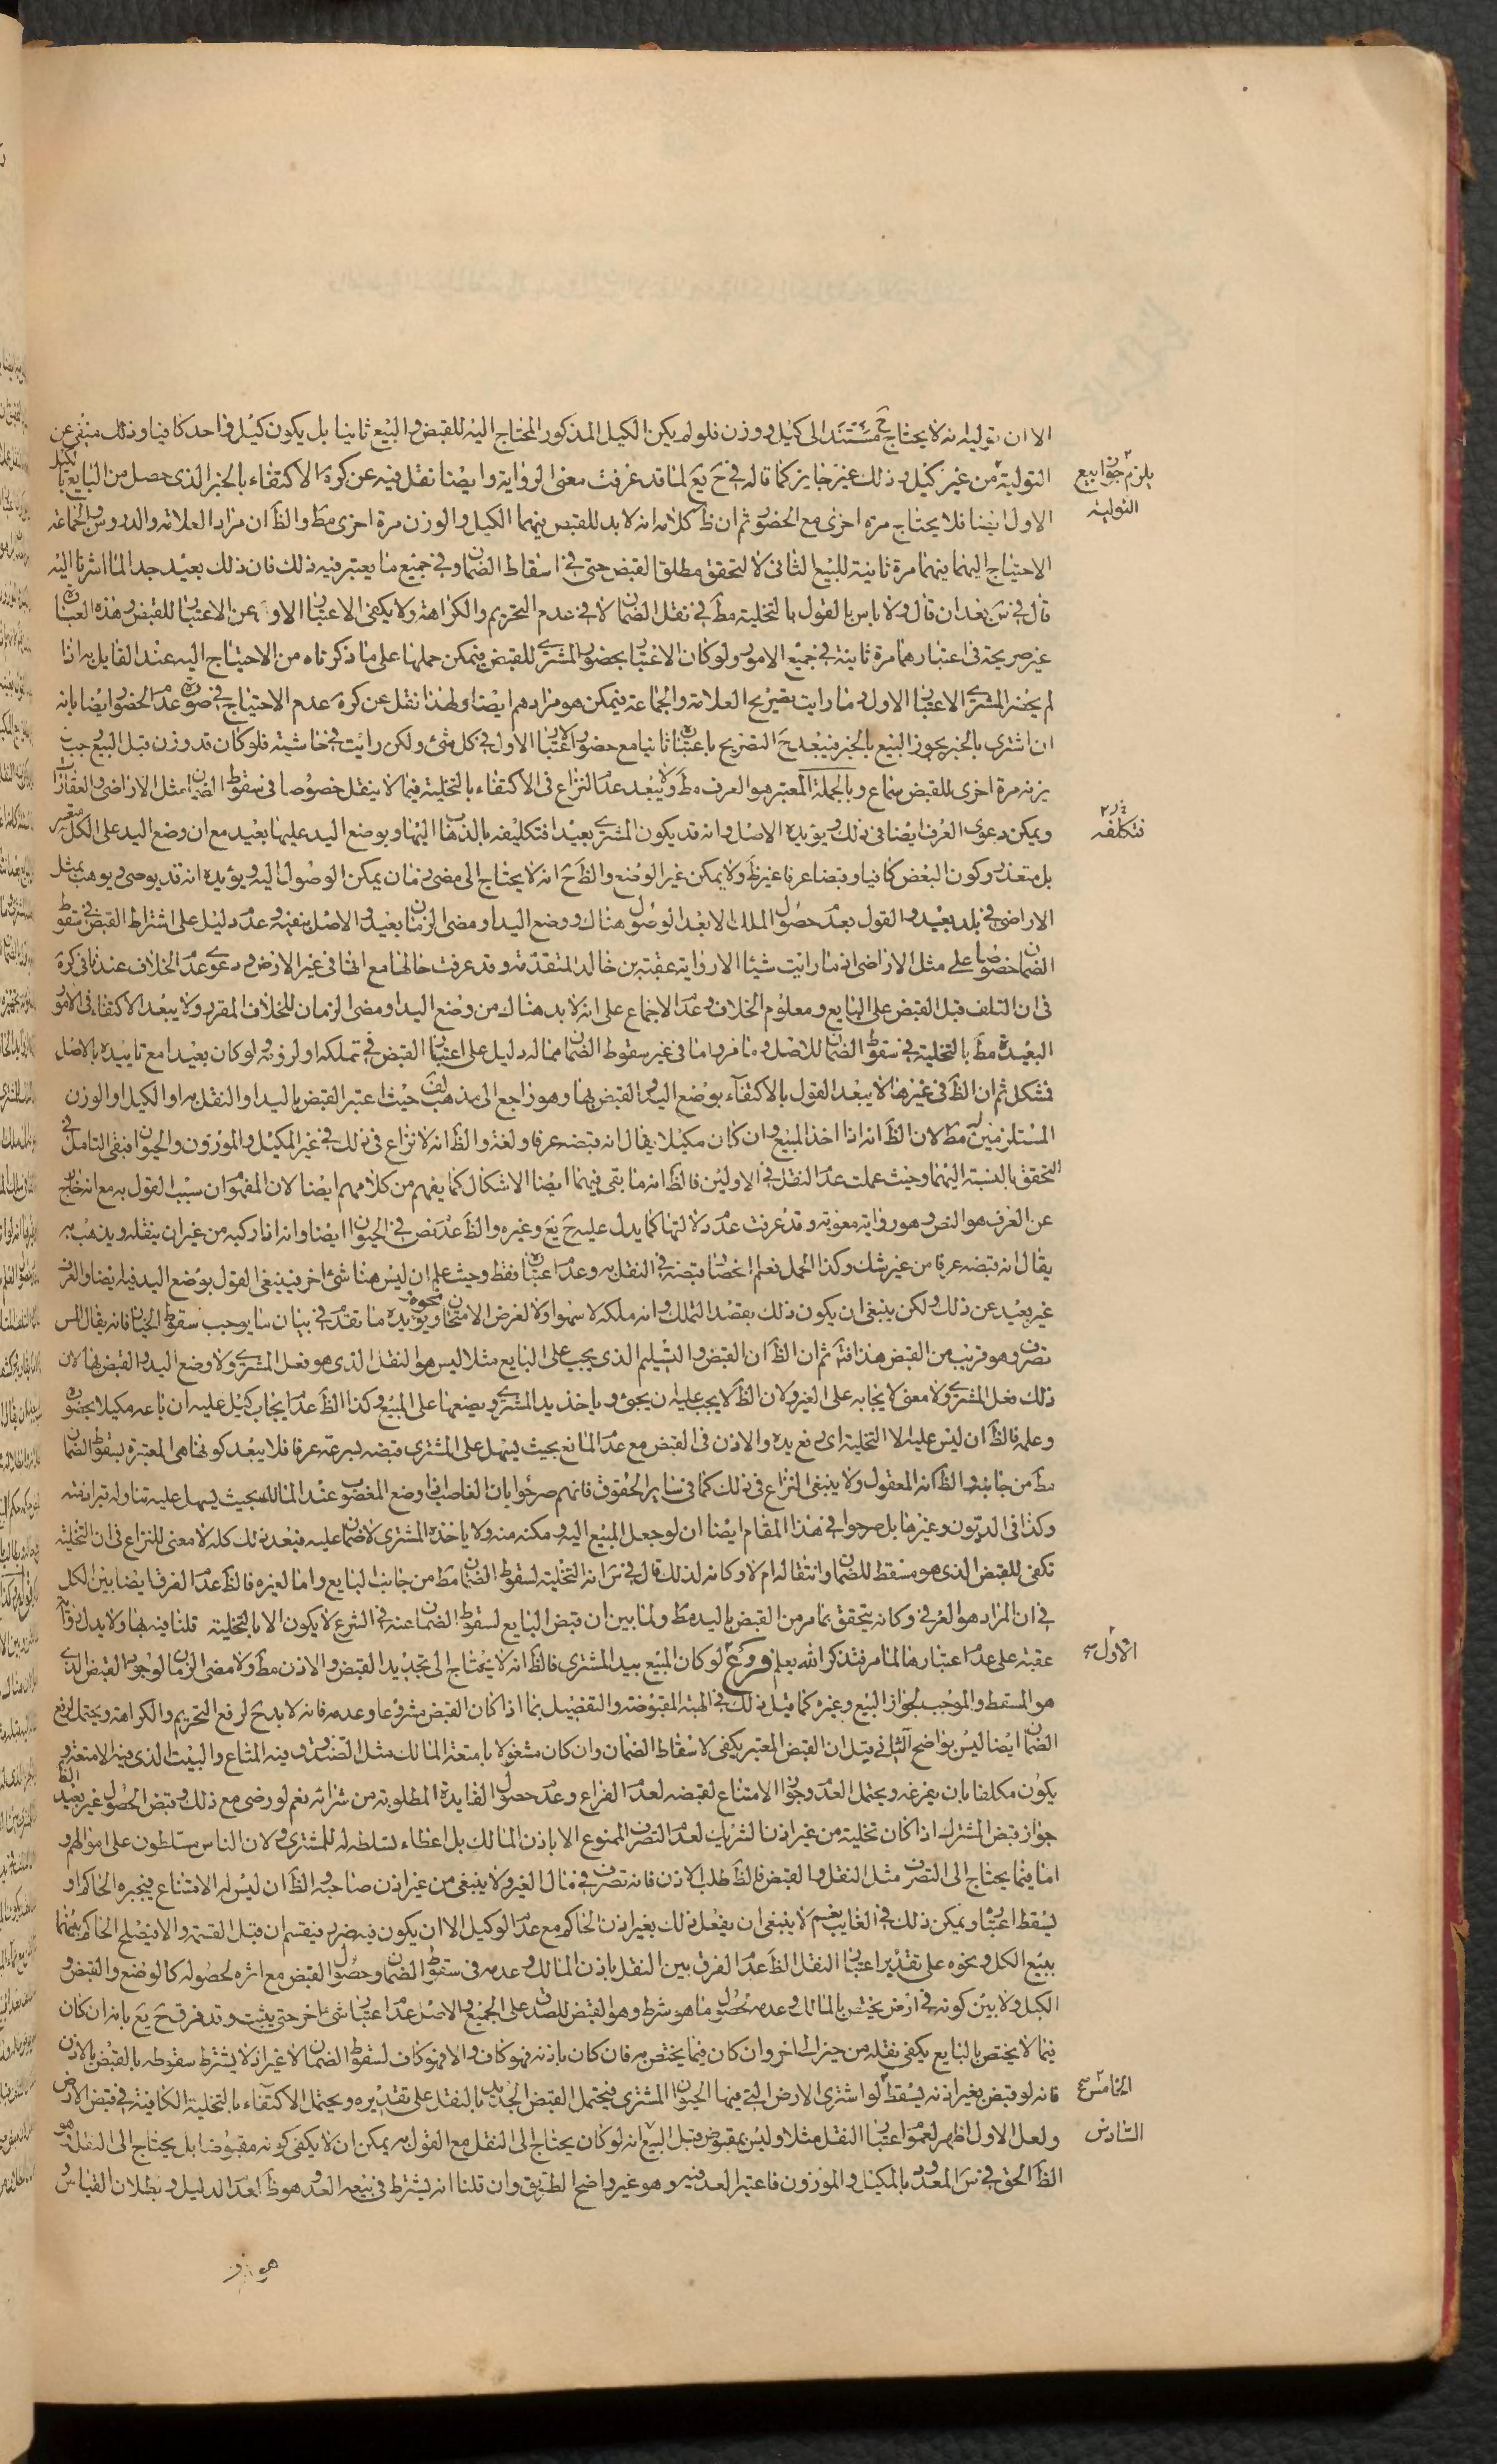 الا ان توليه لانه لا يحتاج ح مستندا الى كيل ووزن فلو لم يكن الكيل المذكور المحتاج اليه للقبض والبيع ثانيا بل يكون كيل واحد كافيا وذلك منفى عن
التولية من غير كيل وذلك غير جايز كما قاله فى ح يع لما قد عرفت معنى الرواية وايضا نقل فيه عن كره الاكتفاء بالخبر الذى حصل من البايع بالكيل
يلزم جواز بيع
التولية
الاول ايضا فلا يحتاج مرة اخرى مع الحضور ثم ان ظ كلامه انه لا بد للقبض فيهما الكيل والوزن مرة اخرى مط والظ ان مراد العلامة والدروس والجماعة
الاحتياج اليهما فيهما مرة ثانية للبيع الثانى لا لتحقق مطلق القبض حتى فى اسقاط الضمان وفى جميع ما يعتبر فيه ذلك فان ذلك بعيد جدا لما اشرنا اليه
قال فى س بعد ان قال ولا باس بالقول بالتخلية مط فى نقل الضمان لا فى عدم التحريم والكراهة ولا يكفى الاعتبار الاول عن الاعتبار للقبض وهذه العبارة
غير صريحة فى اعتبارهما مرة ثانية فى جميع الامور ولو كان الاعتبار بحضور المشترى للقبض فيمكن حملها على ما ذكرناه من الاحتياج اليه عند القايل به اذا
لم يحضر المشترى الاعتبار الاول وما رايت تصريح العلامة والجماعة فيمكن هو مرادهم ايضا ولهذا نقل عن كره عدم الاحتياج فى صورة عدم الحضور ايضا بانه
ان اشترى بالخبر يجوز البيع بالخبر فيبعد ح التصريح باعتباره ثانيا مع حضور الاعتبار الاول فى كل شئ ولكن رايت فى حاشيته فلو كان قد وزن قبل البيع وجب
يزنه مرة اخرى للقبض سماع وبالجملة المعتبر هو العرف مط ولا يبعد عدم النزاع فى الاكتفاء بالتخلية فيما لا ينقل خصوصا فى سقوط الضمان مثل الاراضى والعقارات
ويمكن دعوى العرف ايضا فى ذلك ويؤيده الاصل وانه قد يكون المشترى بعيدا فتكليفه بالذهاب اليها وبوضع اليد عليها بعيد مع ان وضع اليد على الكل متعسر
فتكلفه
بل متعذر وكون البعض كافيا وقبضا عرفا غير ظ ولا يمكن غير الوضع والظ ح انه لا يحتاج الى مضى زمان يمكن الوصول اليه ويؤيده انه قد يوصى ويوهب بمثل
الاراضى فى بلد بعيد والقول بعدم حصول الملك الا بعد الوصول هناك ووضع اليد او مضى الزمان بعيد والاصل ينفيه وعدم دليل على اشتراط القبض فى سقوط
الضمان خصوصا على مثل الاراضى اذ ما رايت شيئا الا رواية عقبة بن خالد المتقدمة وقد عرفت حالها مع انها فى غير الارض ودعوى عدم الخلاف عندنا فى كره
فى ان التلف قبل القبض على البايع ومعلوم الخلاف وعدم الاجماع على انه لا بد هناك من وضع اليد او مضى الزمان للخلاف المقرر ولا يبعد الاكتفاء فى الامور
البعيدة مط بالتخلية فى سقوط الضمان للاصل وما مر واما فى غير سقوط الضمان مما له دليل على اعتبار القبض فى تملكه او لزومه ولو كان بعيدا مع تاييده بالاصل
فمشكل ثم ان الظ فى غيرها لا يبعد القول بالاكتفاء بوضع اليد القبض بها وهو راجع الى مذهب لف حيث اعتبر القبض باليد او النقل به او الكيل او الوزن
المستلزمين له مط لان الظ انه اذا اخذ المبيع وان كان مكيلا يقال انه قبضه عرفا ولغة والظ انه لا نزاع فى ذلك فى غير المكيل والموزون والحيوان فبقى التامل فى
التحقق بالنسبة اليهما وحيث علمت عدم النقل فى الاولين فالظ انه ما بقى فيهما ايضا الاشكال كما يفهم من كلامهم ايضا لان المفهوم ان سبب القول به مع انه خارج
عن العرف هو النص وهو رواية معوية وقد عرفت عدم دلالتها كما يدل عليه ح يع وغيره والظ عدم نص فى الحيوان ايضا وانه اذا ركبه من غير ان ينقله ويذهب به
يقال انه قبضه عرفا من غير شك وكذا الحمل فعلم انحصار قبضه فى النقل به وعدم اعتباره فقط وحيث علم ان ليس هنا شئ اخر فينبغى القول بوضع اليد فيه ايضا والعرف
غير بعيد عن ذلك ولكن ينبغى ان يكون ذلك بقصد التملك وانه ملكه لا سهوا ولا لغرض الامتحان ونحوه ويؤيده ما تقدم فى بيان ما يوجب سقوط الخيار فانه يقال المس
تصرف وهو قريب من القبض هذا فتأ ثم ان الظ ان القبض والتسليم الذى يجب على البايع مثلا ليس هو النقل الذى هو فعل المشترى ولا وضع اليد والقبض بها لان
ذلك فعل المشترى ولا معنى لايجابه على الغير ولان الظ لا يجب عليه ان يجئ وياخذ يد المشترى ويضعها على المبيع وكذا الظ عدم ايجاب كيل عليه ان باعه مكيلا بحضوره
وعلمه فالظ ان ليس عليه الا التخلية اى رفع يده والاذن فى القبض مع عدم المانع بحيث يسهل على المشترى قبضه بسرعة عرفا فلا يبعد كونها هى المعتبرة لسقوط الضمان
مط من جانبه والظ انه المعقول ولا ينبغى النزاع فى ذلك كما فى ساير الحقوق فانهم صرحوا بان الغاصب اذا وضع المغصوب عند المالك بحيث يسهل عليه تناوله تبرا ذمته
وكذا فى الديون وغيرها بل صرحوا فى هذا المقام ايضا ان لو جعل المبيع اليه ومكنه منه ولا ياخذه المشترى لا ضمان عليه فبعد ذلك كله لا معنى للنزاع فى ان التخلية
تكفى للقبض الذى هو مسقط للضمان وانتقاله ام لا وكانه لذلك قال فى س انه التخلية لسقوط الضمان مط من جانب البايع واما لغيره فالظ عدم الفرق ايضا بين الكل
فى ان المراد هو العرفى وكانه يتحقق بما مر من القبض باليد مط ولما بين ان قبض البايع لسقوط الضمان عنه فى الشرع لا يكون الا بالتخلية قلنا فيه بها ولا يدل رواية
عقبة على عدم اعتبارها لما مر فتذكر الله يعلم فروع لو كان المبيع بيد المشترى فالظ انه لا يحتاج الى تجديد القبض والاذن مط ولا مضى الزمان لوجود القبض الذى
الاول
هو المسقط والموجب لجواز البيع وغيره كما قيل ذلك فى الهبة المقبوضة والتفصيل بما اذا كان القبض مشروعا وعدمه فانه لا بد ح لرفع التحريم والكراهة ويحتمل لرفع
الضمان ايضا ليس بواضح الثانى قيل ان القبض المعتبر يكفى لاسقاط الضمان وان كان مشغولا بامتعة المالك مثل الصندوق وفيه المتاع والبيت الذى فيه الامتعة و
يكون مكلفا بان يفرغه ويحتمل العدم وجواز الامتناع لقبضه لعدم الفراغ وعدم حصول الفايدة المطلوبة من شرائه نعم لو رضى مع ذلك وقبض الحصول غير بعيد الظ
جواز قبض المشترك اذا كان تخلية من غير اذن الشريك لعدم التصرف الممنوع الا باذن المالك بل اعطاء تسلطه له للمشترى ولان الناس مسلطون على اموالهم و
اما فيما يحتاج الى التصرف مثل النقل والقبض فالظ طلب الاذن فانه تصرف فى مال الغير ولا ينبغى من غير اذن صاحبه والظ ان ليس له الامتناع فيجبره الحاكم او
يسقط اعتباره ويمكن ذلك فى الغايب نعم لا ينبغى ان يفعل ذلك بغير اذن الحاكم مع عدم الوكيل الا ان يكون فيه ضرر فيقسم ان قبل القسمة والا فيصلح الحاكم بينهما
ببيع الكل ونحوه على تقدير اعتبار النقل الظ عدم الفرق بين النقل باذن المالك وعدمه فى سقوط الضمان وحصول القبض مع اثره لحصوله كالوضع والقبض و
الكيل ولا بين كونه فى ارض يختص بالمالك وعدمه لحصول ما هو شرط وهو القبض للصدق على الجميع والاصل عدم اعتبار شئ اخر حتى يثبت وقد فرق ح يع بانه ان كان
فيما لا يختص بالبايع يكفى نقله من حيز الى اخر وان كان فيما يختص به فان كان باذنه فهو كاف والا فهو كاف لسقوط الضمان لا غير اذ لا يشترط سقوطه بالقبض بالاذن
فانه لو قبض بغير اذنه يسقط لو اشترى الارض التى فيها الحيوان المشترى فيحتمل القبض الجديد بالنقل على تقديره ويحتمل الاكتفاء بالتخلية الكافية فى قبض الارض
الخامس
ولعل الاول اظهر لعموم اعتبار النقل مثلا وليس بمقبوض قبل البيع انه لو كان يحتاج الى النقل مع القول به يمكن ان لا يكفى كونه مقبوضا بل يحتاج الى النقل و هو
السادس
الظ الحق فى س المعدود بالمكيل والموزون فاعتبر العد فيه وهو غير واضح الطريق وان قلنا انه يشترط فى بيعه العد وهو ظ لعدم الدليل وبطلان القياس و